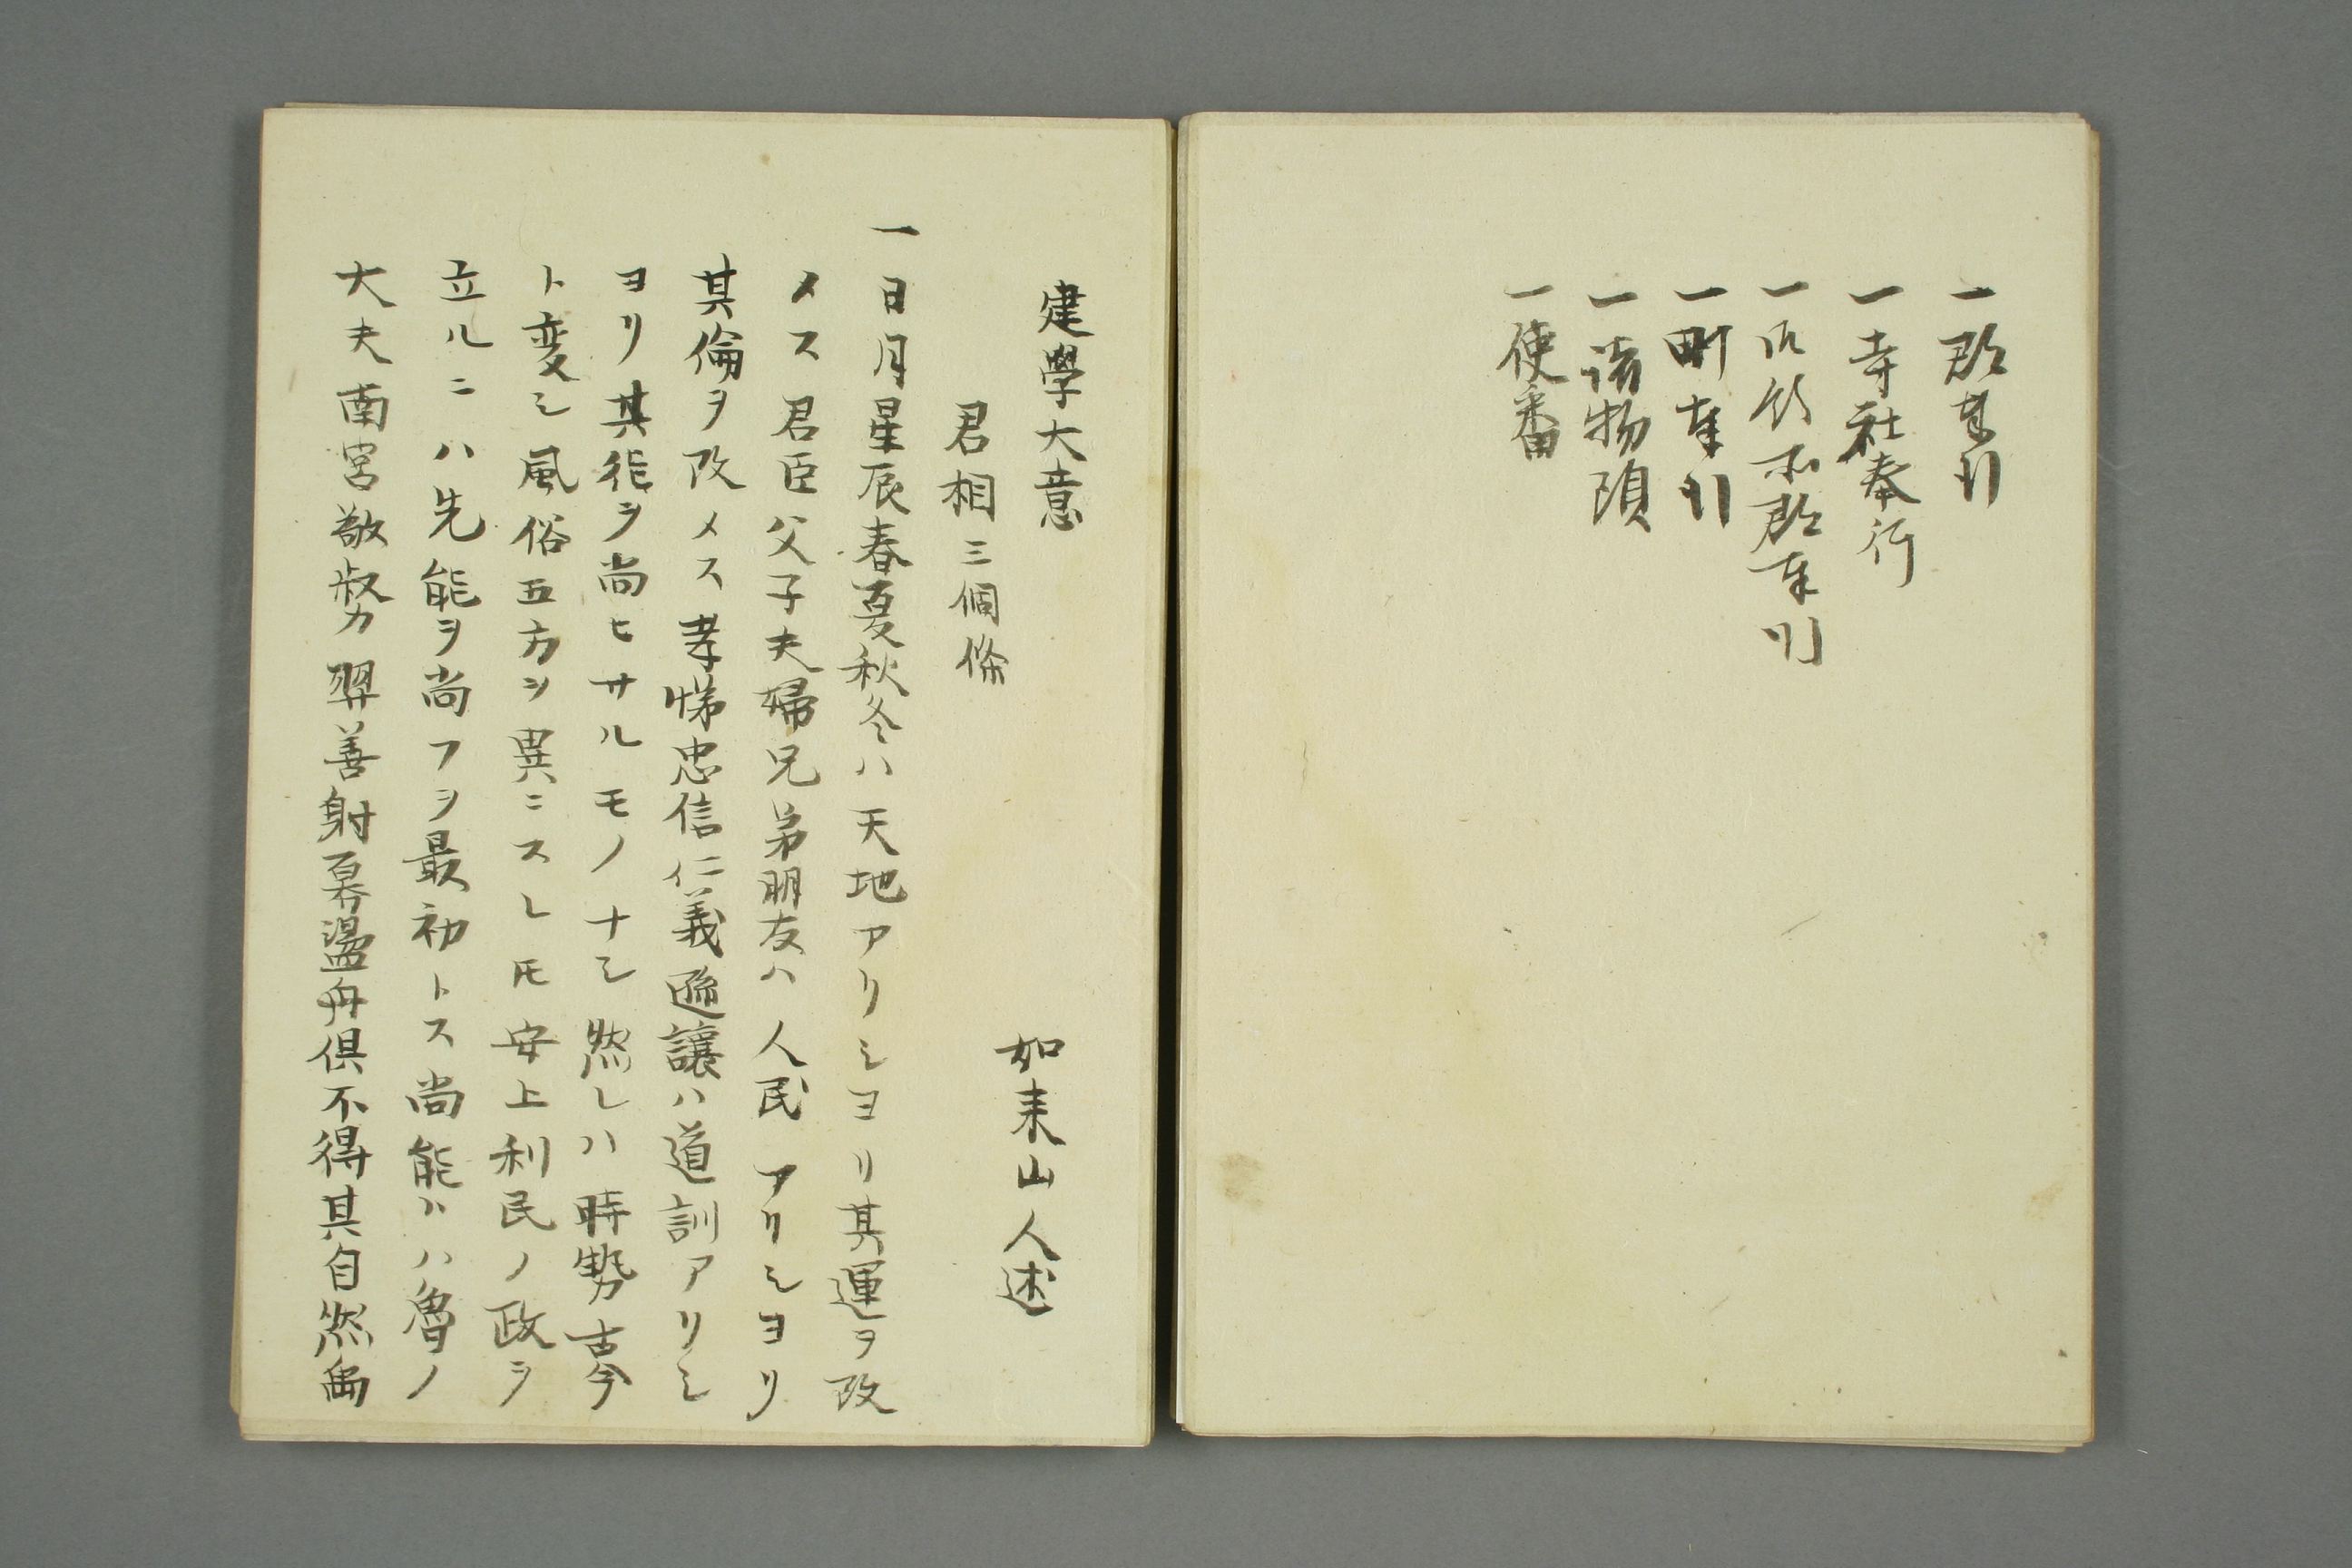 一郡奉行
一寺社奉行
一所郡奉行
一町奉行
一諸物頭
一使番
建學大意
如来山人述
君相三個條
一日月星辰春夏秋冬ハ天地アリシヨリ其運ヲ改
メス君臣父子夫婦兄弟朋友ハ人民アリシヨリ
其倫ヲ改メス孝悌忠信仁義遜讓ハ道訓アリシ
ヨリ其徳ヲ尚ヒサルモノナシ然レハ時勢古今
ト変シ風俗五方ヲ異ニスレモ安上利民ノ政ヲ
立ルニハ先能ヲ尚フヲ最初トス尚能ハハ魯ノ
大夫南宮敬叔カ羿善射奡盪舟俱不得其自然禹